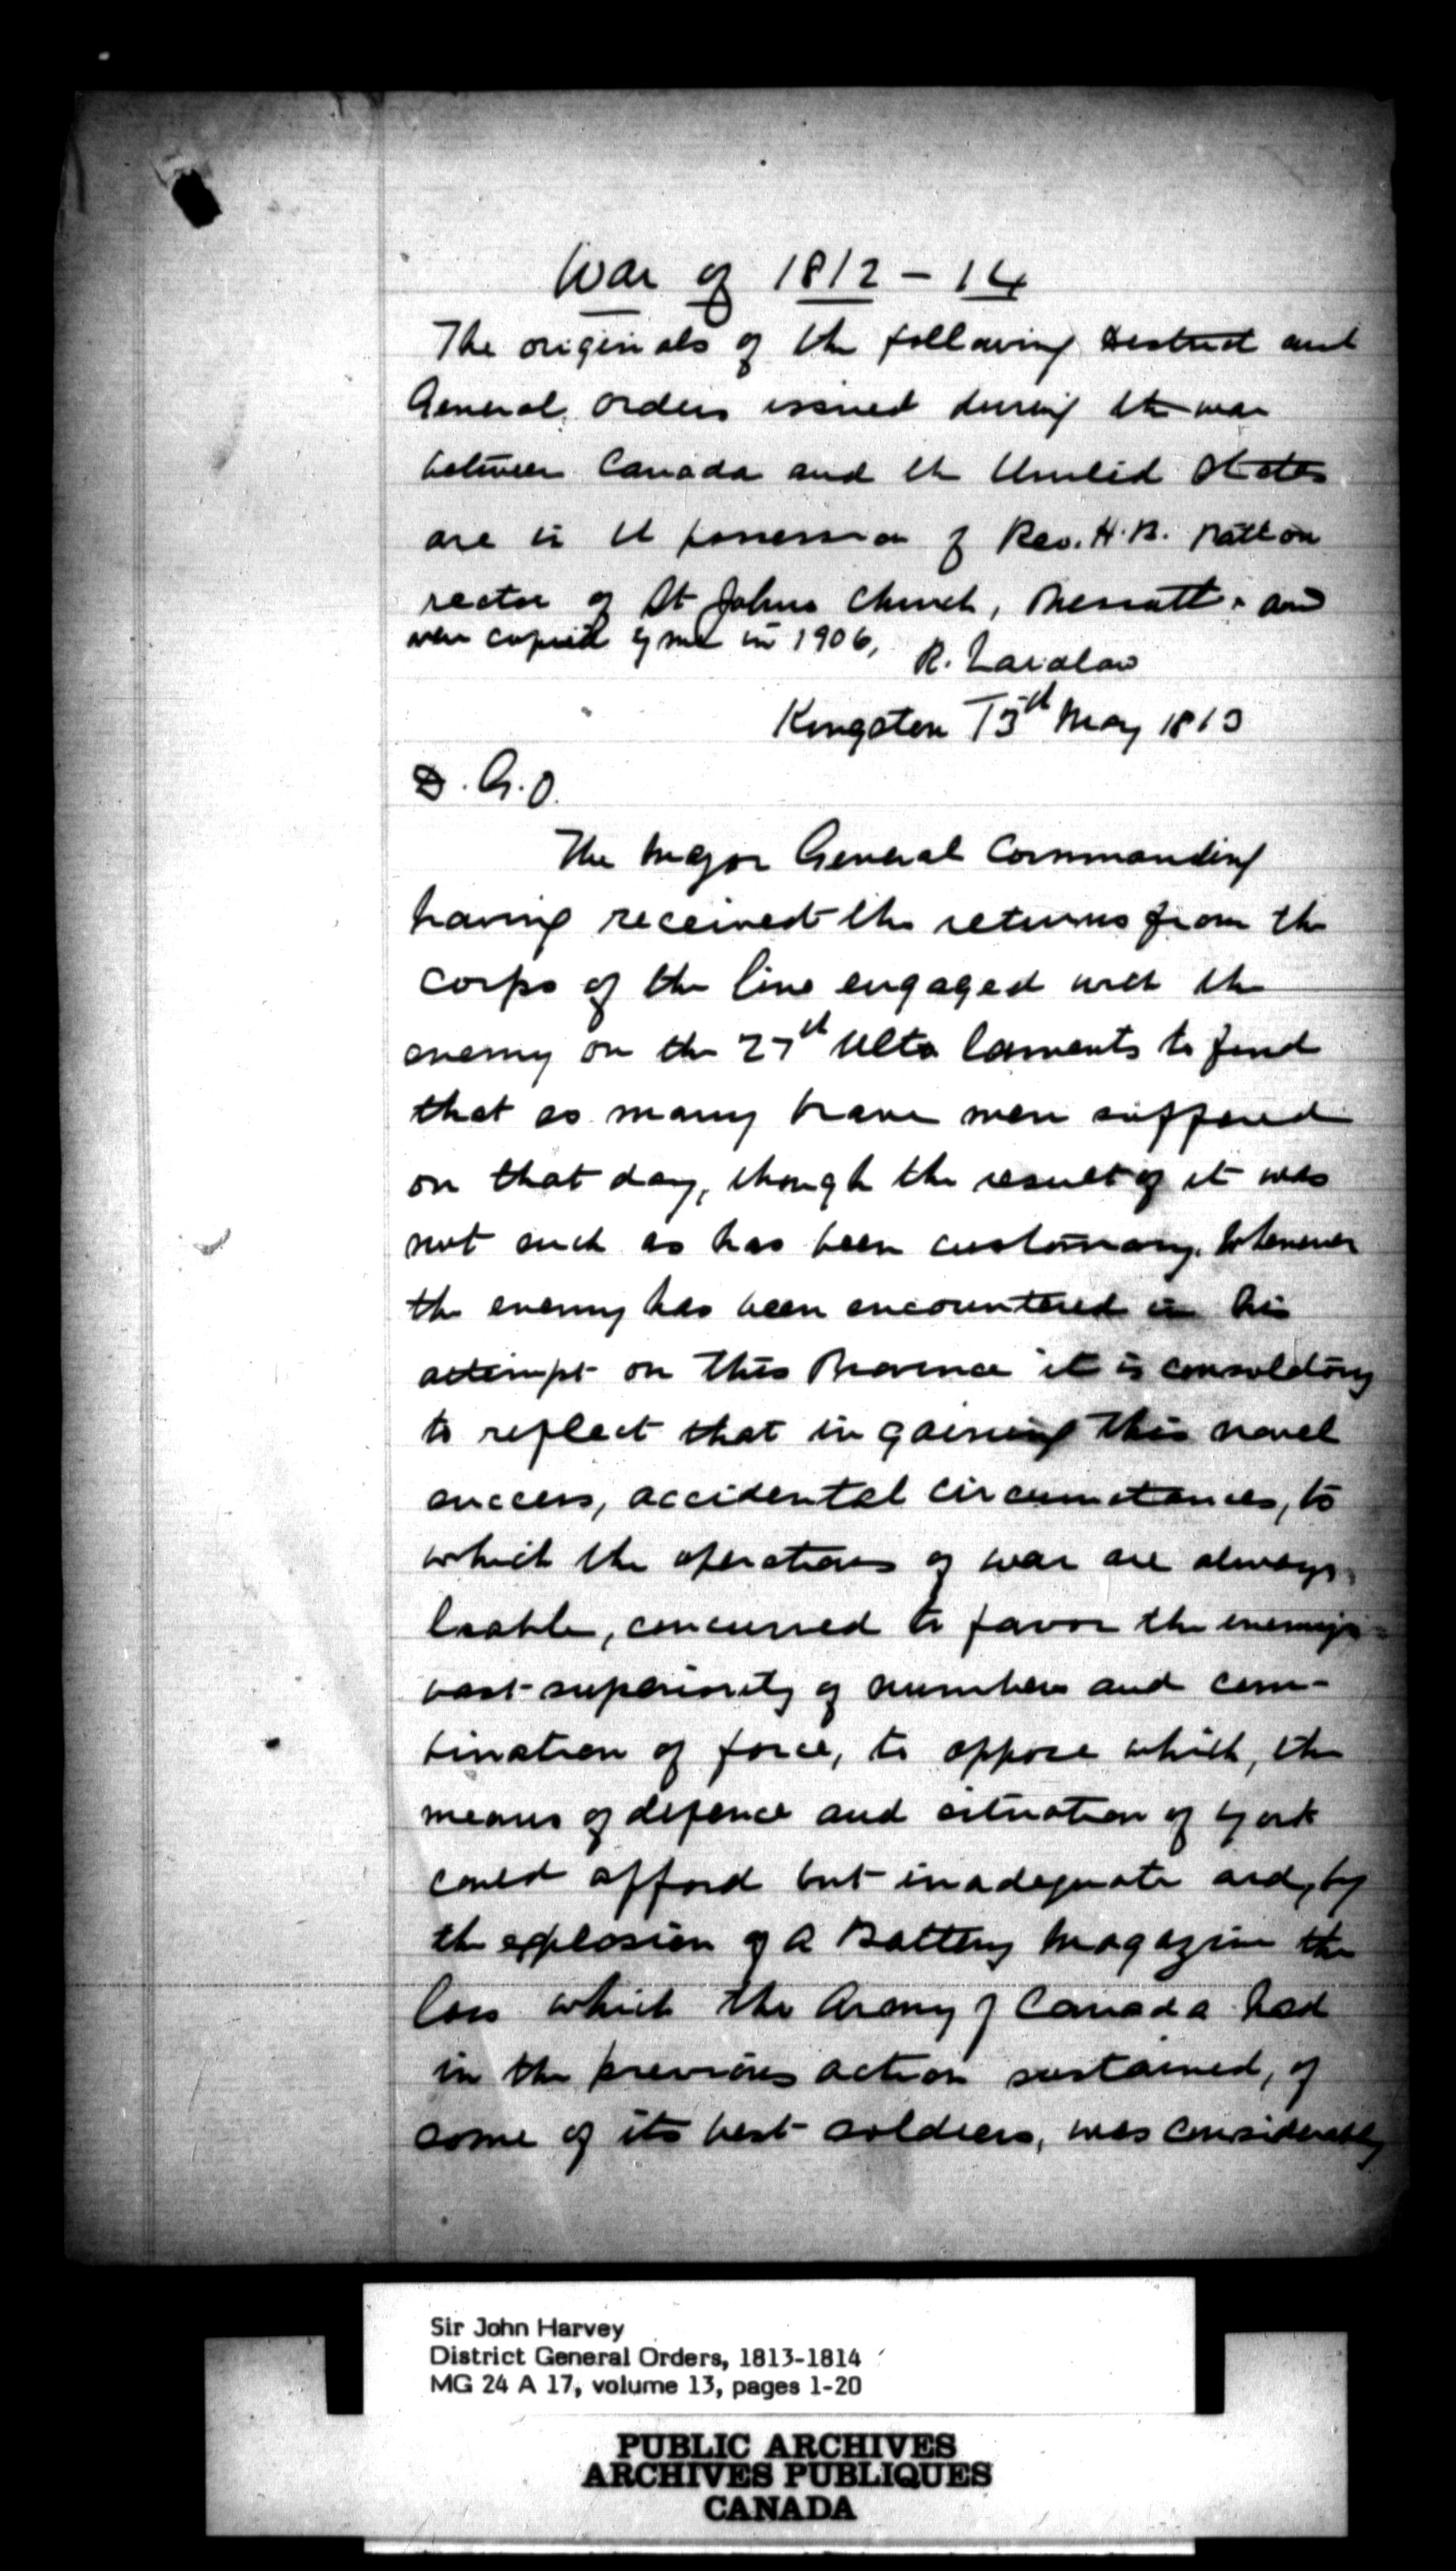 War of 1812 - 14
The originals of the following District and
General Orders issued during the war
between Canada and the United States
are in the possession of Rev. H. B. Patton
rector of St Johns Church, Prescott and
were copied by me in 1906,
R. Laidlaw
Kingston 13th May 1813
D. G. O.
The Major General Commanding
having received the returns from the
corps of the line engaged with the
enemy on the 27th Ulto laments to find
that so many brave men suffered
on that day, though the result of it was
not such as has been customary, whenever
the enemy has been encountered in his
attempt on this Province it is consolatory
to reflect that in gaining this novel
success, accidental circumstances, to
which the operations of war are always
liable, concurred to favor the enemy's
vast superiority of numbers and com-
bination of force, to oppose which, the
means of defence and situation of York
could afford but inadequate aid, by
the explosion of a Battery Magazine the
loss which the Army of Canada had
in the previous action sustained, of
some of its best soldiers, was considerably
Sir John Harvey
District General Orders, 1813-1814
MG 24 A 17, volume 13, pages 1-20
PUBLIC ARCHIVES
ARCHIVES PUBLIQUES
CANADA